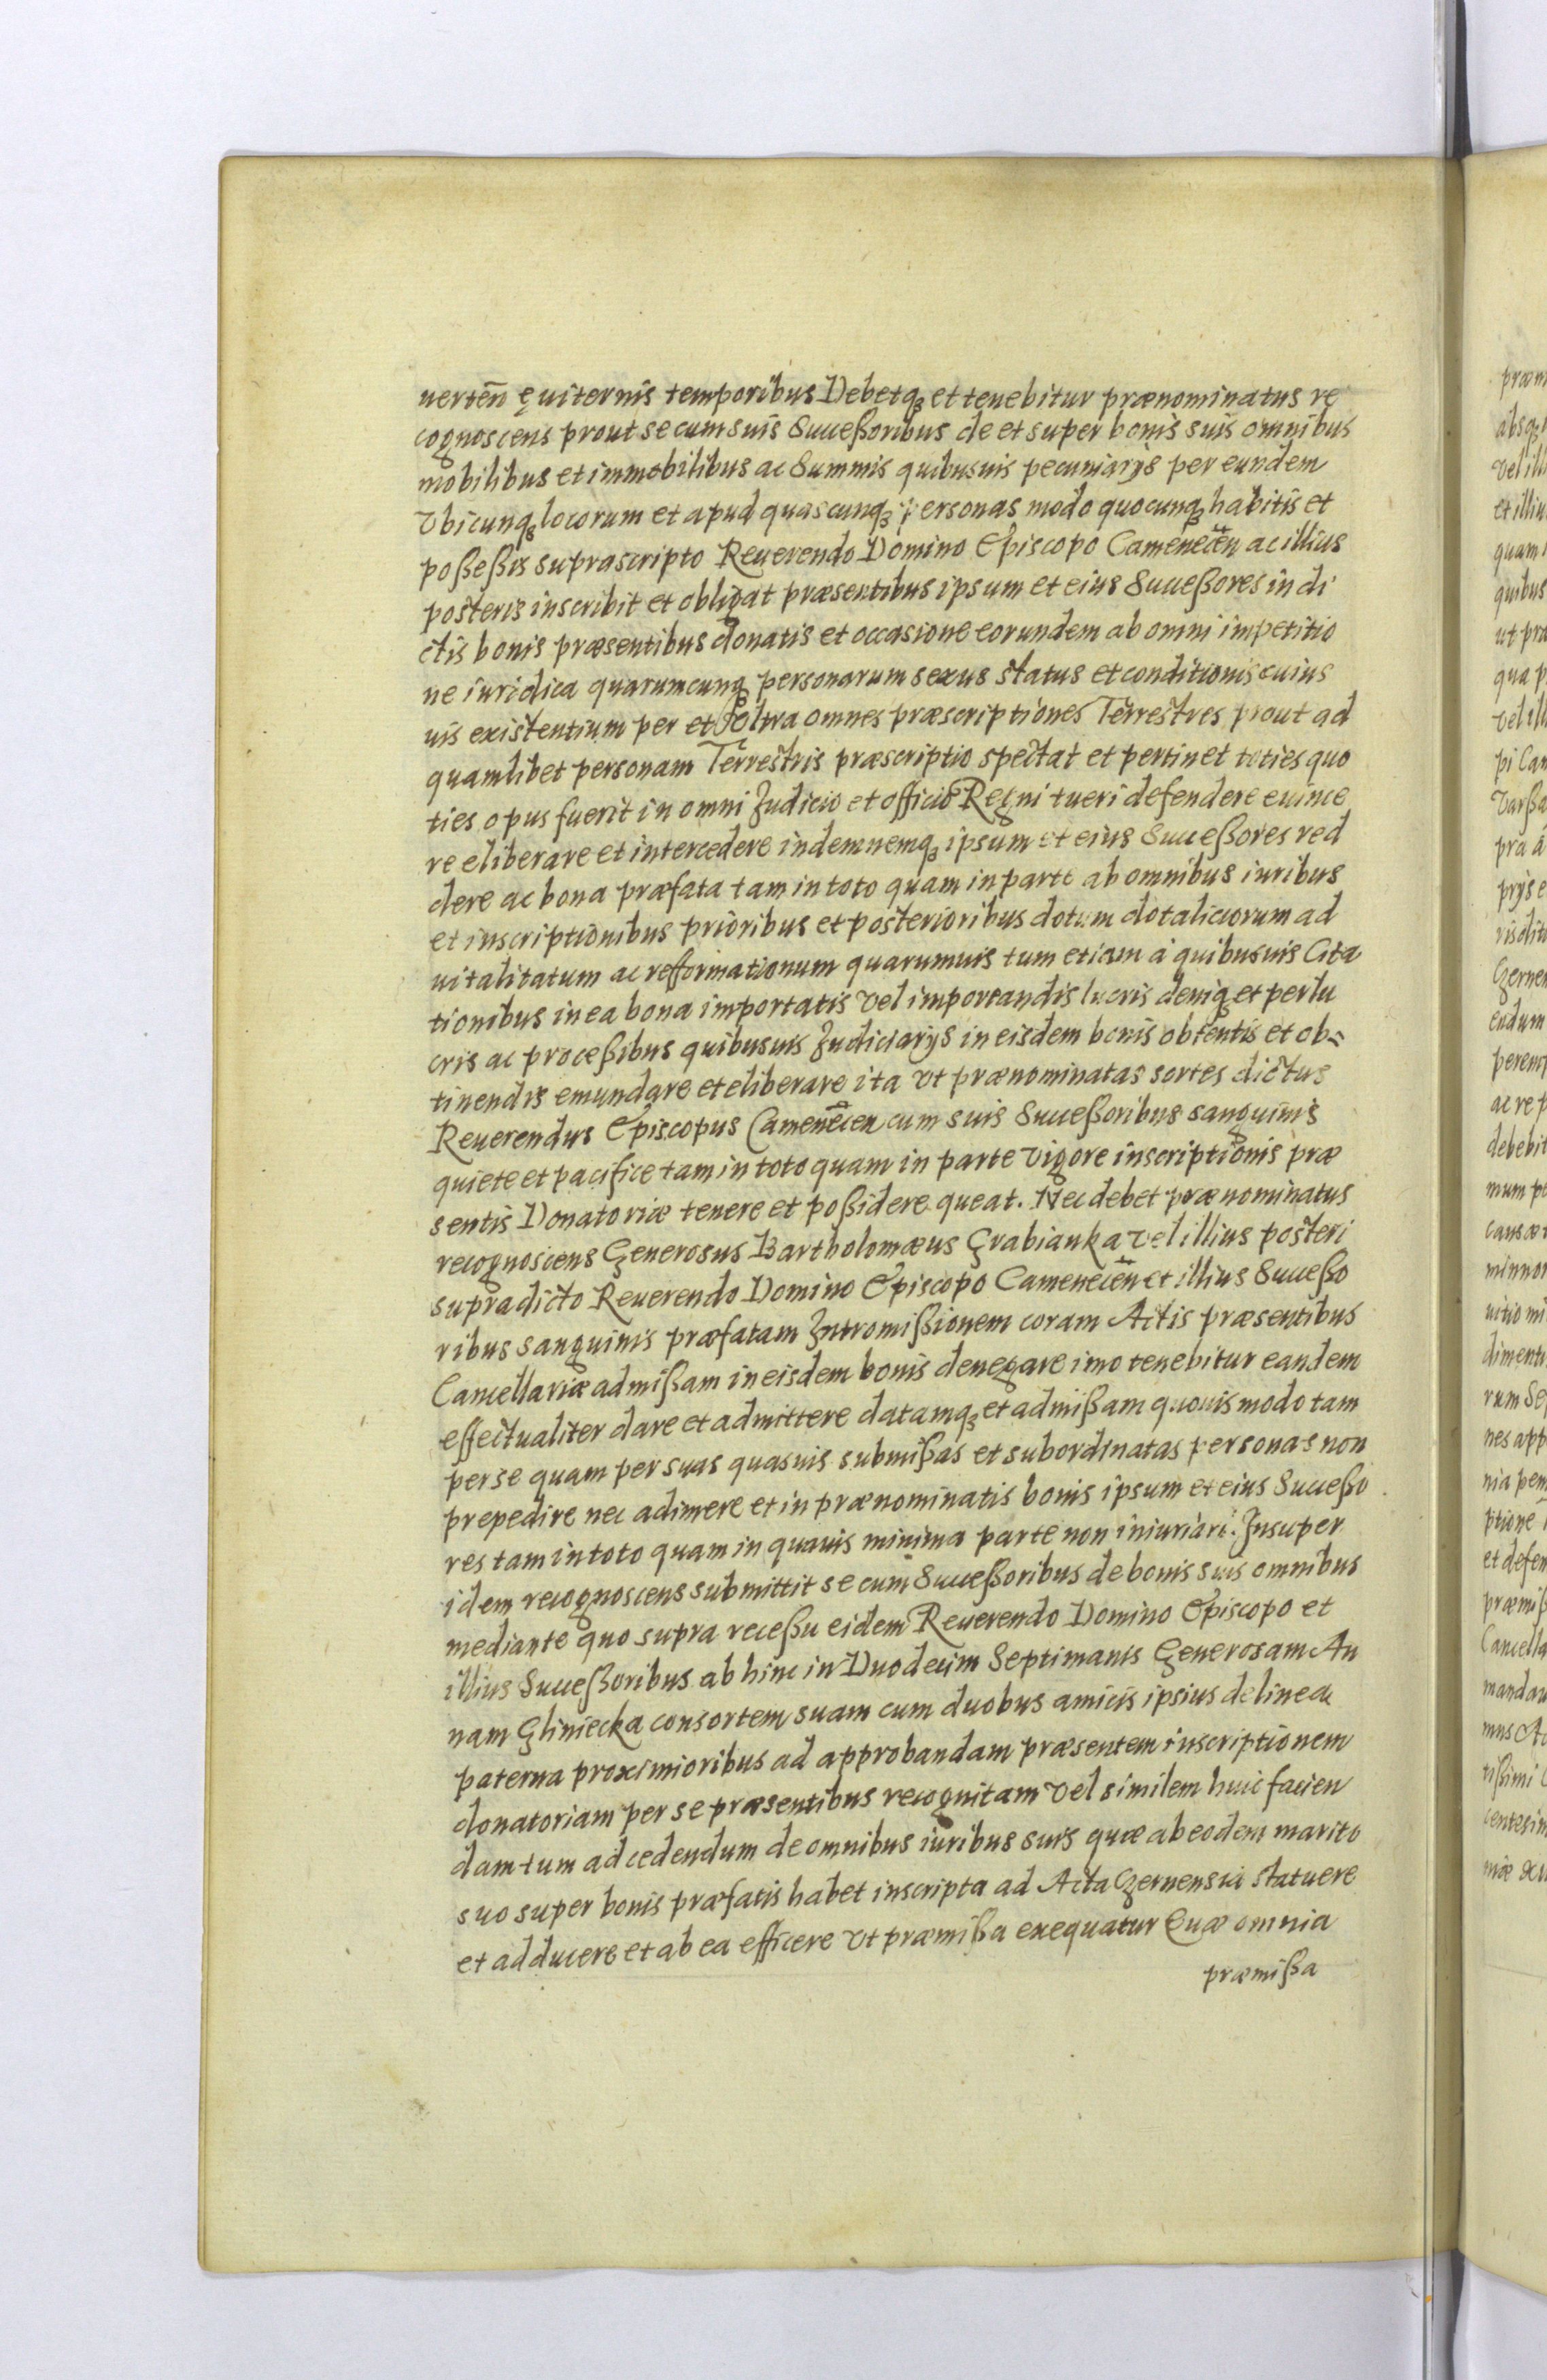 uerten̄ ęuiternis temporibus Debetqꝫ et tenebitur prænominatus re
cognoscens prout se cum suis Succeßoribus de et super bonis suis omnibus
mobilibus et immobilibus ac Summis quibusuis pecuniarijs per eundem
Vbicunqꝫ locorum et apud quascunqꝫ personas modo quocunqꝫ habitis et
poßeßis suprascripto Reuerendo Domino Episcopo Camenecen̄ ac illius
posteris inscribit et obligat præsentibus ipsum et eius Succeßores in di
ctis bonis præsentibus donatis et occasione eorundem ab omni impetitio
ne iuridica quarumcunqꝫ personarum sexus status et conditionis cuius
uis existentium per et Vltra omnes præscriptiones Terrestres prout ad
quamlibet personam Terrestris præscriptio spectat et pertinet toties quo
ties opus fuerit in omni Judicio et officio Regni tueri defendere euince
re eliberare et intercedere indemnemqꝫ ipsum et eius Succeßores red
dere ac bona præfata tam in toto quam in parte ab omnibus iuribus
et inscriptionibus prioribus et posterioribus dotum dotaliciorum ad
uitalitatum ac refformationum quarumuis tum etiam à quibusuis Cita
tionibus in ea bona importatis Vel importandis lucris deniqꝫ et perlu
cris ac proceßibus quibusuis Judiciarijs in eisdem bonis obtentis et ob=
tinendis emundare et eliberare ita Vt prænominatas sortes dictus
Reuerendus Episcopus Camenecen̄ cum suis Succeßoribus sanguinis
quiete et pacifice tam in toto quam in parte Vigore inscriptionis præ
sentis Donatoriæ tenere et poßidere queat. Nec debet prænominatus
recognoscens Generosus Bartholomæus Grabianka Vel illius posteri
supradicto Reuerendo Domino Episcopo Camenecen̄ et illius Succeßo
ribus sanguinis præfatam Intromißionem coram Actis præsentibus
Cancellariæ admißam in eisdem bonis denegare imo tenebitur eandem
effectualiter dare et admittere datamqꝫ et admißam quouis modo tam
per se quam per suas quasuis submißas et subordinatas personas non
prepedire nec adimere et in prænominatis bonis ipsum et eius Succeßo
res tam in toto quam in quauis minima parte non iniuriari. Insuper
idem recognoscens submittit se cum Succeßoribus de bonis suis omnibus
mediante quo supra receßu eidem Reuerendo Domino Episcopo et
illius Succeßoribus ab hinc in Duodecim Septimanis Generosam An
nam Gliniecka consortem suam cum duobus amicis ipsius de linea
paterna proximioribus ad approbandam præsentem inscriptionem
donatoriam per se præsentibus recognitam Vel similem huic facien
dam tum ad cedendum de omnibus iuribus suis quæ ab eodem marito
suo super bonis præfatis habet inscripta ad Acta Czernensia statuere
et adducere et ab ea efficere Vt præmißa exequatur Quæ omnia
præmißa